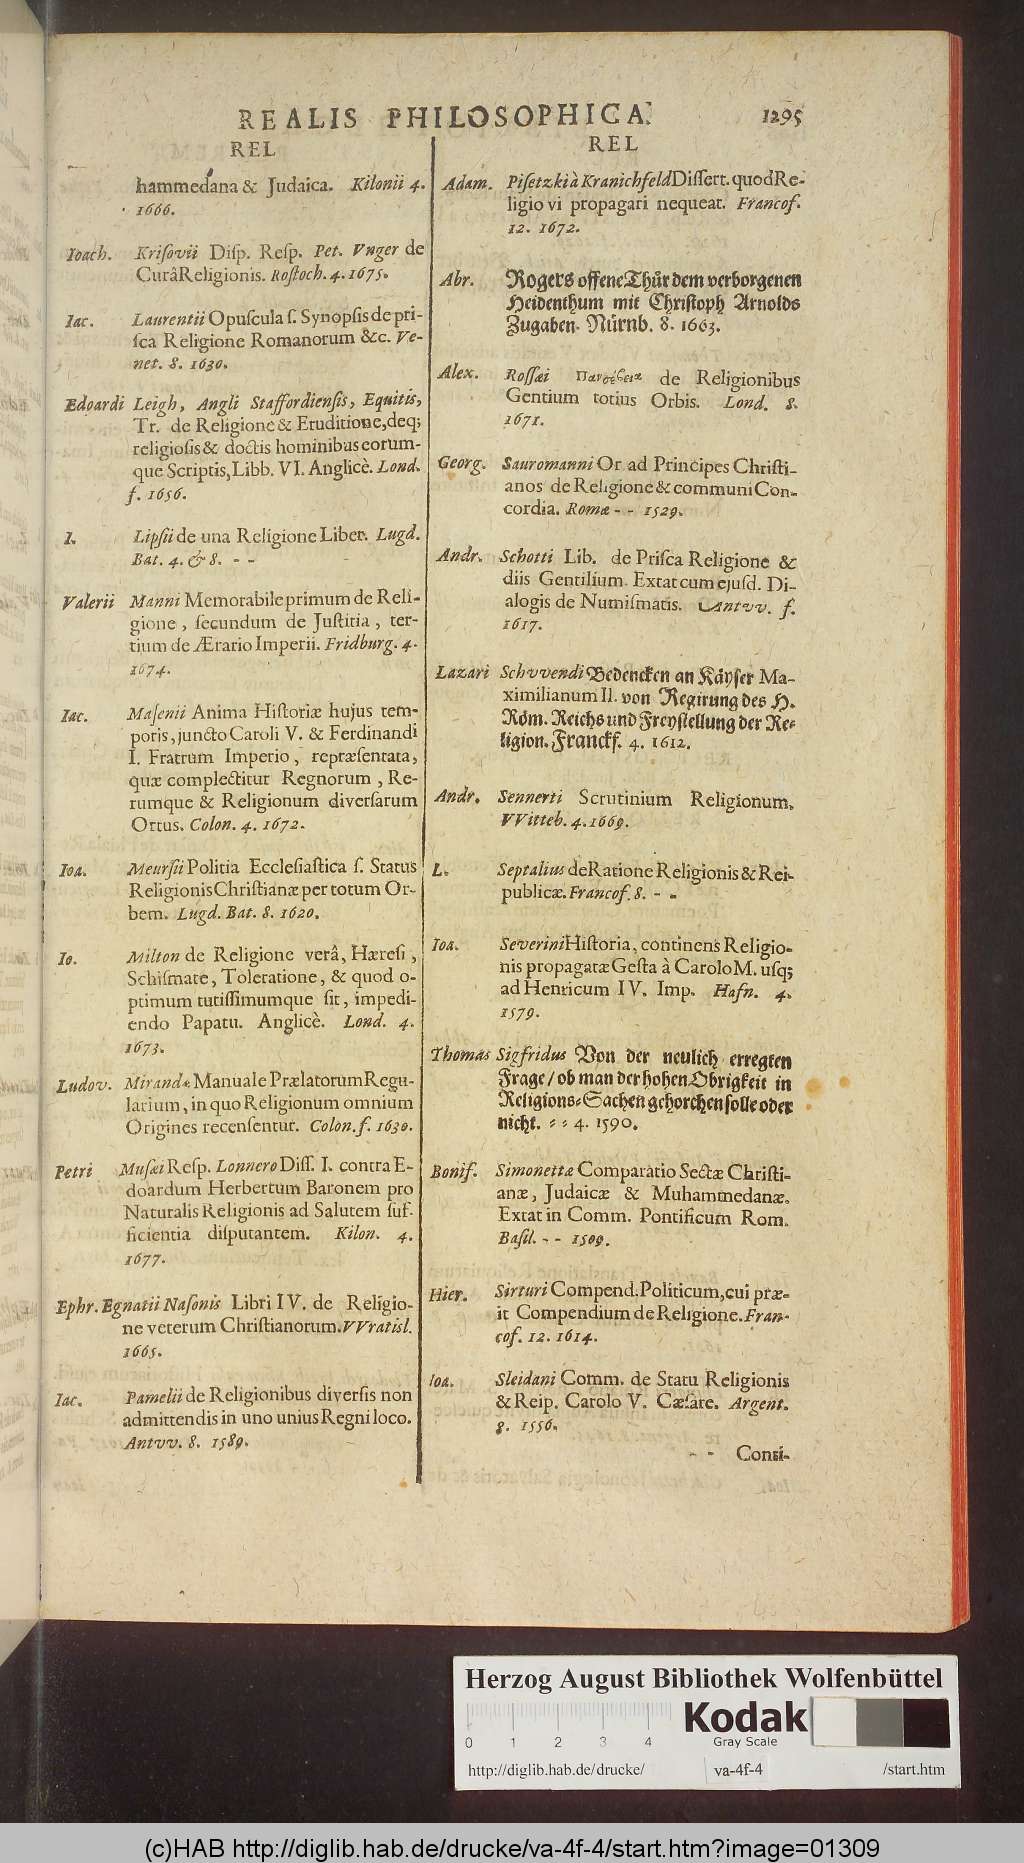 REALIS PHILOSOPHICA.
1295
REL
hammedana & Judaica. Kilonii 4.
1666.
Ioach. Kriſovii Diſp. Reſp. Pet. Vnger de
Curâ Religionis. Roſtoch. 4. 1675.
Iac. Laurentii Opuſcula ſ. Synopſis de pri-
ſca Religione Romanorum &c. Ve-
net. 8. 1630.
Edoardi Leigh, Angli Staffordienſis, Equitis,
Tr. de Religione & Eruditione, deq;
religioſis & doctis hominibus eorum-
que Scriptis, Libb. VI. Anglicè. Lond.
f. 1656.
I. Lipſii de una Religione Liber. Lugd.
Bat. 4. & 8. - -
Valerii Manni Memorabile primum de Reli-
gione, ſecundum de Juſtitia, ter-
tium de Ærario Imperii. Fridburg. 4.
1674.
Iac. Maſenii Anima Hiſtoriæ hujus tem-
poris, juncto Caroli V. & Ferdinandi
I. Fratrum Imperio, repræſentata,
quæ complectitur Regnorum, Re-
rumque & Religionum diverſarum
Ortus. Colon. 4. 1672.
Ioa. Meurſii Politia Eccleſiaſtica ſ. Status
Religionis Chriſtianæ per totum Or-
bem. Lugd. Bat. 8. 1620.
Io. Milton de Religione verâ, Hæreſi,
Schiſmate, Toleratione, & quod o-
ptimum tutiſſimumque ſit, impedi-
endo Papatu. Anglicè. Lond. 4.
1673.
Ludov. Mirandæ Manuale Prælatorum Regu-
larium, in quo Religionum omnium
Origines recenſentur. Colon. f. 1630.
Petri Muſæi Reſp. Lonnero Diſſ. I. contra E-
doardum Herbertum Baronem pro
Naturalis Religionis ad Salutem ſuf-
ficientia diſputantem. Kilon. 4.
1677.
Ephr. Egnatii Naſonis Libri IV. de Religio-
ne veterum Chriſtianorum. VVratisl.
1665.
Iac. Pamelii de Religionibus diverſis non
admittendis in uno unius Regni loco.
Antvv. 8. 1589.
REL
Adam. Piſetzki à Kranichfeld Diſſert. quod Re-
ligio vi propagari nequeat. Francof.
12. 1672.
Abr. Rogers offene Thür dem verborgenen
Heidenthum mit Chriſtoph Arnolds
Zugaben. Nürnb. 8. 1663.
Alex. Roſſæi Πανσέβεια de Religionibus
Gentium totius Orbis. Lond. 8.
1671.
Georg. Sauromanni Or. ad Principes Chriſti-
anos de Religione & communi Con-
cordia. Romæ - - 1529.
Andr. Schotti Lib. de Priſca Religione &
diis Gentilium. Extat cum ejuſd. Di-
alogis de Numiſmatis. Antvv. f.
1617.
Lazari Schvvendi Bedencken an Käyſer Ma-
ximilianum II. von Regirung des H.
Röm. Reichs und Freyſtellung der Re-
ligion. Franckf. 4. 1612.
Andr. Sennerti Scrutinium Religionum.
VVitteb. 4. 1669.
L. Septalius de Ratione Religionis & Rei-
publicæ. Francof. 8. - -
Ioa. Severini Hiſtoria, continens Religio-
nis propagatæ Geſta à Carolo M. uſq;
ad Henricum IV. Imp. Hafn. 4.
1579.
Thomas Sigfridus Von der neulich erregten
Frage / ob man der hohen Obrigkeit in
Religions-Sachen gehorchen ſolle oder
nicht. - - 4. 1590.
Bonif. Simonettæ Comparatio Sectæ Chriſti-
anæ, Judaicæ & Muhammedanæ.
Extat in Comm. Pontificum Rom.
Baſil. - - 1509.
Hier. Sirturi Compend. Politicum, cui præ-
it Compendium de Religione. Fran-
cof. 12. 1614.
Ioa. Sleidani Comm. de Statu Religionis
& Reip. Carolo V. Cæſare. Argent.
8. 1556.
- - Conſi-
Herzog August Bibliothek Wolfenbüttel
0 1 2 3 4
Kodak
Gray Scale
http://diglib.hab.de/drucke/ va-4f-4 /start.htm
(c)HAB http://diglib.hab.de/drucke/va-4f-4/start.htm?image=01309